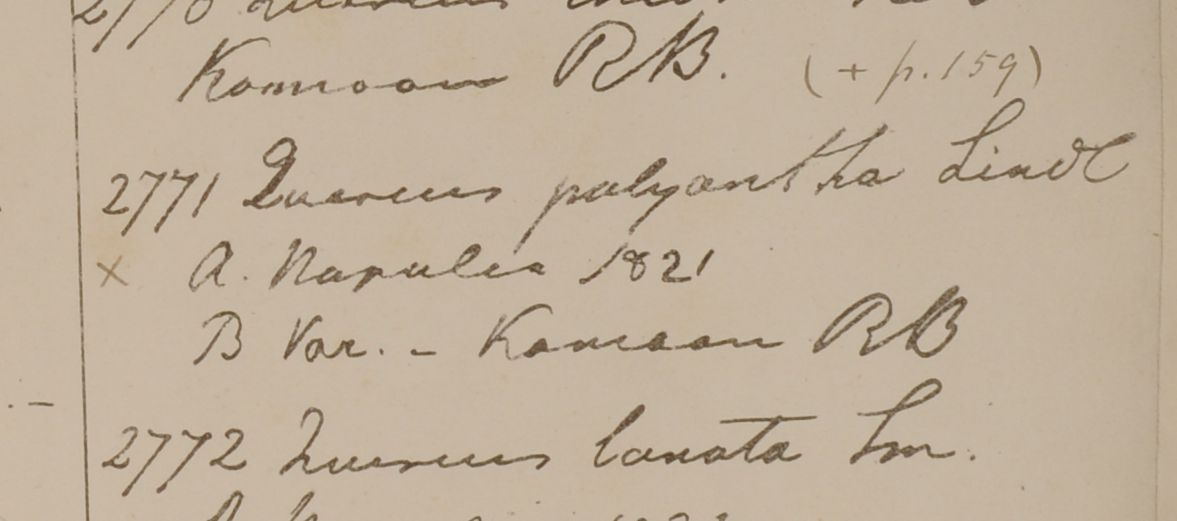 2770 Quercus
Kamaoon RB. (+ p. 159)
2771 Quercus polyantha Lindl
x A. Napalia 1821
B Var. - Kamaoon RB
2772 Quercus lanata Sm.